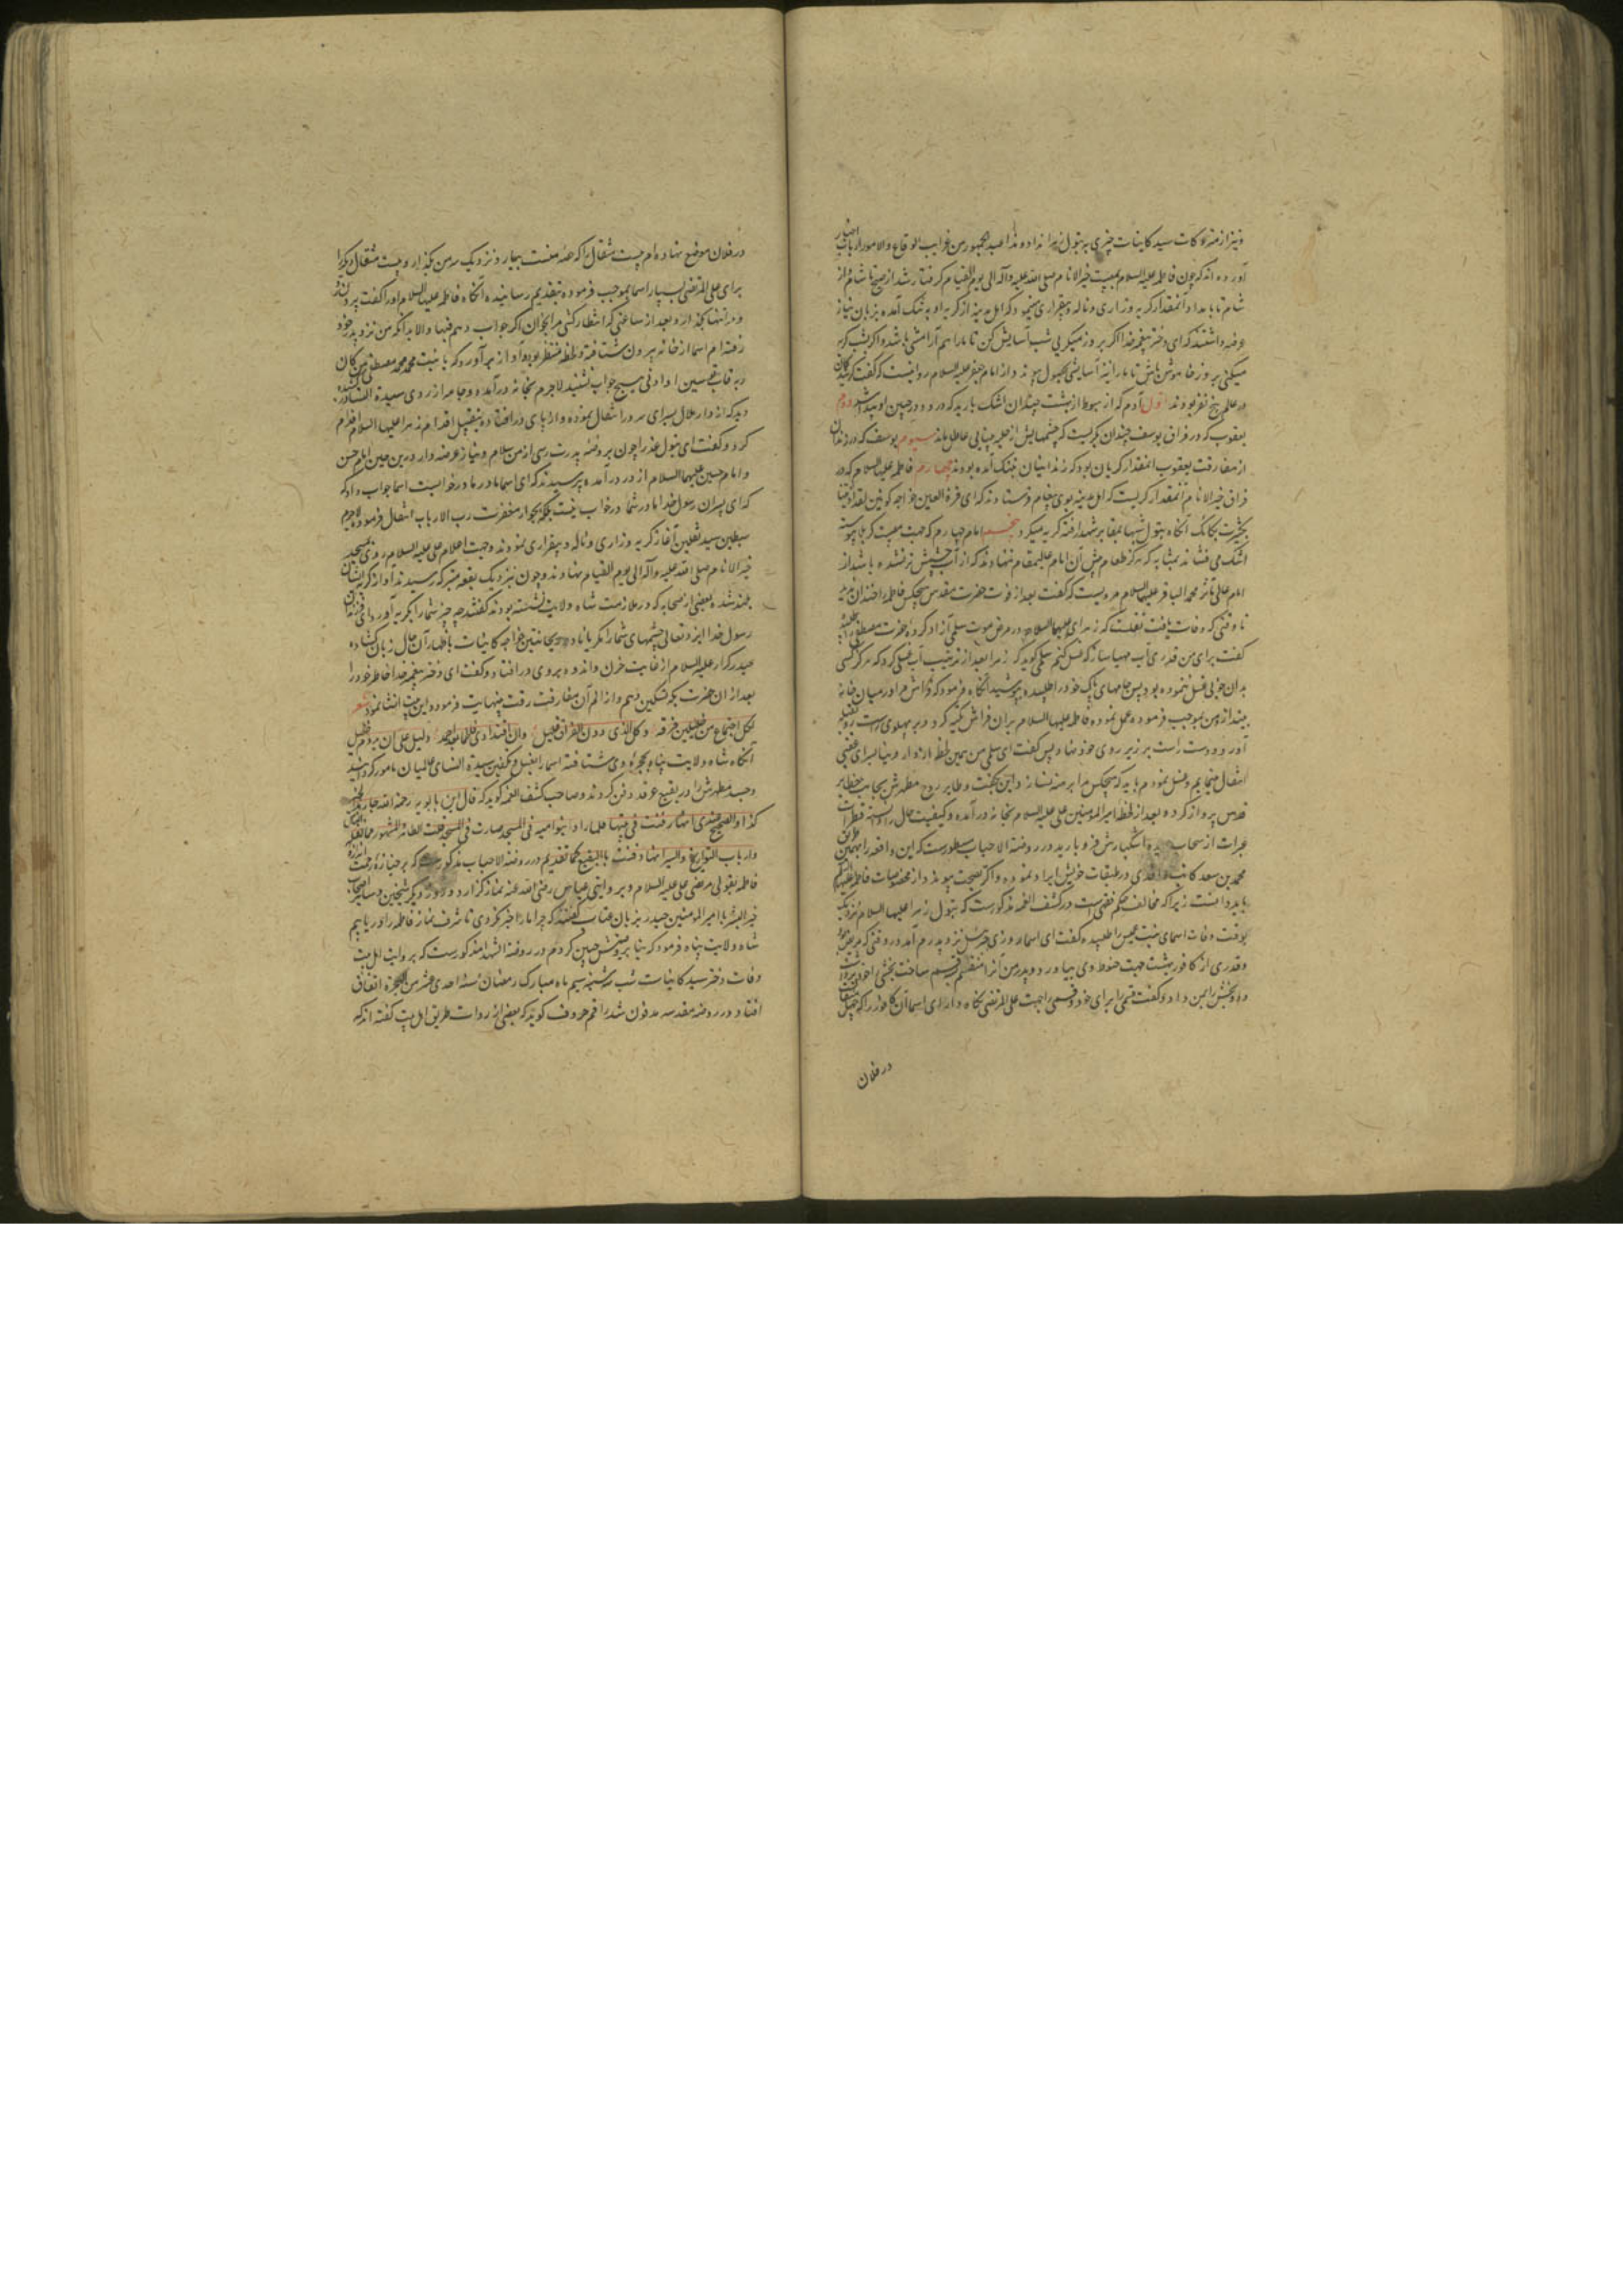 ونیز از متروکات سید کاینات چیزی به بتول زهرا نداد و هذا عند الجمهور من غرایب الوقایع والامور ارباب اخبار
آورده اند که چون فاطمه علیه السلام بمصیبت خیر الانام صلی الله علیه وآله الی یوم القیام گرفتار شد از صبح تا شام و از
شام تا بامداد آنمقدار گریه وزاری وناله وبیقراری مینمود که اهل مدینه از گریه او به تنک آمده بزبان نیاز
عرضه داشتند که ای دختر پیغمبر خدا اکر بروز میکریی شب آسایش کن تا مارا هم آرامشی باشد واکر بشب گریه
میکنی بروز خاموش باش تا مارا نیز آسایشی بحصول پیوندد واز امام جعفر علیه السلام روایتست که گفت گریه کنندکان
در عالم پنج نفر بودند اول آدم که از هبوط از بهشت چندان اشک بارید که دو رود در جبین او پیدا شد دوم
یعقوب که در فراق یوسف چندان بگریست که چشمهایش از حلیه بینایی عاطل ماند سیوم یوسف که در زندان
از مفارقت یعقوب آنمقدار گریان بود که زندانیان بتنک آمده بودند چهارم فاطمه علیه السلام که در
فراق خیر الانام آنمقدار گریست که اهل مدینه بوی پیغام فرستادند که ای قرة العین خواجه کونین لقد آذیتنا
بکثرت بکائک آنکاه بتول شبها بمقابر شهدا رفته گریه میکرد پنجم امام چهارم که جهت مصیبت کربلا پیوسته
اشک می فشاند بمثابه که هرکز طعام پیش آن امام عالیمقام ننهادند که از آب چشمش تر نشده باشد از
امام عالی مآثر محمد الباقر علیهما السلام مرویست که گفت بعد از فوت حضرت مقدس هیچکس فاطمه را خندان ندید
تا وقتی که وفات یافت نقلست که زهرای علیها السلام در مرض موت سلمی آزاد کرده حضرت مصطفی را طلبیده
گفت برای من قدری آب مهیا ساز که غسل کنم سلمی گوید که زهرا بعد از ترتیب آب غسلی کرد که هرکز کسی
به آن خوبی غسل ننموده بود پس جامهای پاک خود را طلبیده بپوشید آنکاه فرمود که فراش مرا در میان خانه
بینداز و من بموجب فرموده عمل نموده فاطمه علیها السلام بر آن فراش تکیه کرد و بر پهلوی راست رو بقبله
آورد و دست راست بر زیر روی خود نهاد پس گفت ای سلمی من همین لحظه از دار دنیا بسرای عقبی
انتقال مینمایم و غسل نموده ام باید که هیچکس مرا برهنه نسازد این بگفت و طایر روح مطهرش بجانب حظایر
قدس پرواز کرده بعد از لحظه امیر المومنین علی علیه السلام بخانه درآمده و کیفیت حال دانسته قطرات
عبرات از سحاب دیده اشکبارش فرو بارید در روضة الاحباب مسطورست که این واقعه را بهمین طریق
محمد بن سعد کاتب واقدی در طبقات خویش ایراد نموده و اکر بصحت پیوندد از مخصوصات فاطمه علیها السلام
باید دانست زیرا که مخالف حکم فقهی است در کشف الغمه مذکورست که بتول زهرا علیها السلام نزدیک
بوقت وفات اسمای بنت عمیس را طلبیده گفت ای اسما روزی جبرئیل نزد پدرم آمد در وقتی که مریض بود
وقدری از کافور بهشت جهت حنوط وی بیاورد و پدر من آنرا منقسم بسه قسم ساخت بخشی خود برداشت
و دو بخش را بمن داد و گفت قسمی را برای خود و قسمی را جهت علی المرتضی نکاه دار ای اسما آن کافور را که چهل مثقالست
در فلان
در فلان موضع نهاده ام بیست مثقال را که حصه منست بیار و نزدیک سر من بگذار و بیست مثقال دیکر را
برای علی المرتضی بسپار اسما بموجب فرموده بتقدیم رسانیده آنکاه فاطمه علیها السلام او را گفت بیرون رو
و مرا تنها بگذار و بعد از ساعتی که انتظار کشی مرا بخوان اکر جواب دهم فبها والا بدانکه من نزد پدر خود
رفته ام اسما از خانه بیرون شتافته و لحظه منتظر بوده آواز برآورد که یا بنت محمد المصطفی یا بنت من کان
ربه قاب قوسین او ادنی هیچ جواب نشنید لاجرم بخانه درآمده و جامه از روی سیدة النساء کشیده
دید که از دار ملال بسرای سرور انتقال نموده و از پای درافتاده بتقبیل اقدام زهرا علیها السلام اقدام
کرد و گفت ای بتول عذرا چون بروضه پدرت رسی از من سلام و نیاز عرضه دار و درین حین امام حسن
و امام حسین علیهما السلام از در درآمده پرسیدند که ای اسما مادر ما در خوابست اسما جواب داد که
که ای پسران رسول خدا مادر شما در خواب نیست بلکه بجوار مغفرت رب الارباب انتقال فرموده لاجرم
سبطین سید ثقلین آغاز گریه وزاری وناله وبیقراری نمودند و جهت اعلام علی علیه السلام روی بمسجد
خیر الانام صلی الله علیه وآله الی یوم القیام نهادند و چون نزدیک بقعه متبرکه رسیدند آواز گریه ایشان
بلند شده بعضی از صحابه که در ملازمت شاه ولایت نشسته بودند گفتند چه چیز شما را بگریه آورد ای فرزندان
رسول خدا ایزد تعالی چشمهای شما را مگریاناد ریحانتین خواجه کاینات باظهار آن حال زبان کشاده
حیدر کرار علیه السلام از غایت حزن و اندوه بروی درافتاد و گفت ای دختر پیغمبر خدا خاطر خود را
بعد از آن حضرت بکه تسکین دهم و از الم آن مفارقت رقت بینهایت فرموده این بیت انشا نمود شعر
لکل اجتماع من خلیلین فرقة وکل الذی دون الفراق قلیل وان افتقادی فاطما بعد احمد دلیل علی ان لا یدوم خلیل
آنکاه شاه ولایت پناه بحجره وی شتافته اسما را بغسل و تکفین سیدة النسای عالمیان مامور کردانید
و جسد مطهرش را در بقیع غرقد دفن کردند و صاحب کشف الغمه گوید که قال ابن بابویه رحمه الله
کذا والصحیح عندی انها دفنت فی بیتها فلما زاد بنو امیه فی المسجد صارت فی المسجد قلت الظاهر المشهور مما نقله الناس
وارباب التواریخ والسیر انها دفنت بالبقیع کما تقدم در روضة الاحباب مذکورست که بر جنازه رحمت اندازه
فاطمه بقولی مرتضی علی علیه السلام و بر روایتی عباس رضی الله عنه نماز گزارد و روز دیگر شیخین و سایر اصحاب
خیر البشر با امیر المومنین حیدر بزبان عتاب گفتند که چرا ما را خبر نکردی تا شرف نماز فاطمه را دریابیم
شاه ولایت پناه فرمود که بنا بر وصیتش چنین کردم و در روضة الشهدا مذکورست که بروایت اهل بیت
وفات دختر سید کاینات شب سه شنبه سیم ماه مبارک رمضان سنه احدی عشر من الهجرة اتفاق
افتاد و در روضه مقدسه مدفون شد راقم حروف گوید که بعضی از روات طریق اهل بیت گفته اند که